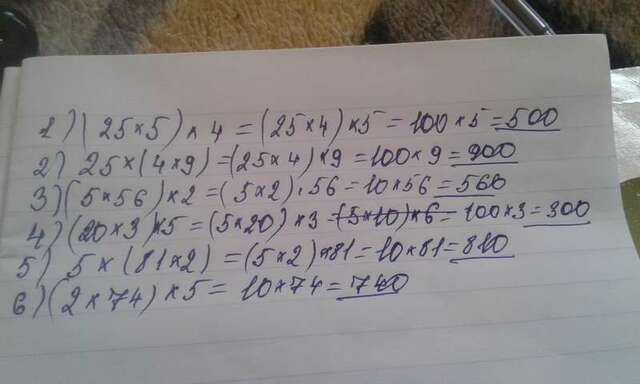 1) (25×5)×4 = (25×4)×5 = 100×5 = 500
2) 25×(4×9) = (25×4)×9 = 100×9 = 900
3) (5×56)×2 = (5×2)·56 = 10×56 = 560
4) (20×3)×5 = (5×20)×3 = (5×10)×6 = 100×3 = 300
5) 5×(81×2) = (5×2)×81 = 10×81 = 810
6) (2×74)×5 = 10×74 = 740